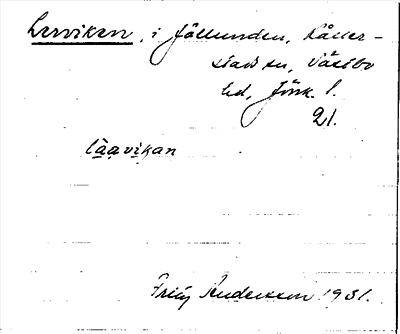 Lerviken, i Fällunden, Kåller-
stads sn, Västbo
hd, Jönk. l.
21.
lä̱a̱vi̱kan
Fritz Andersson 1931.